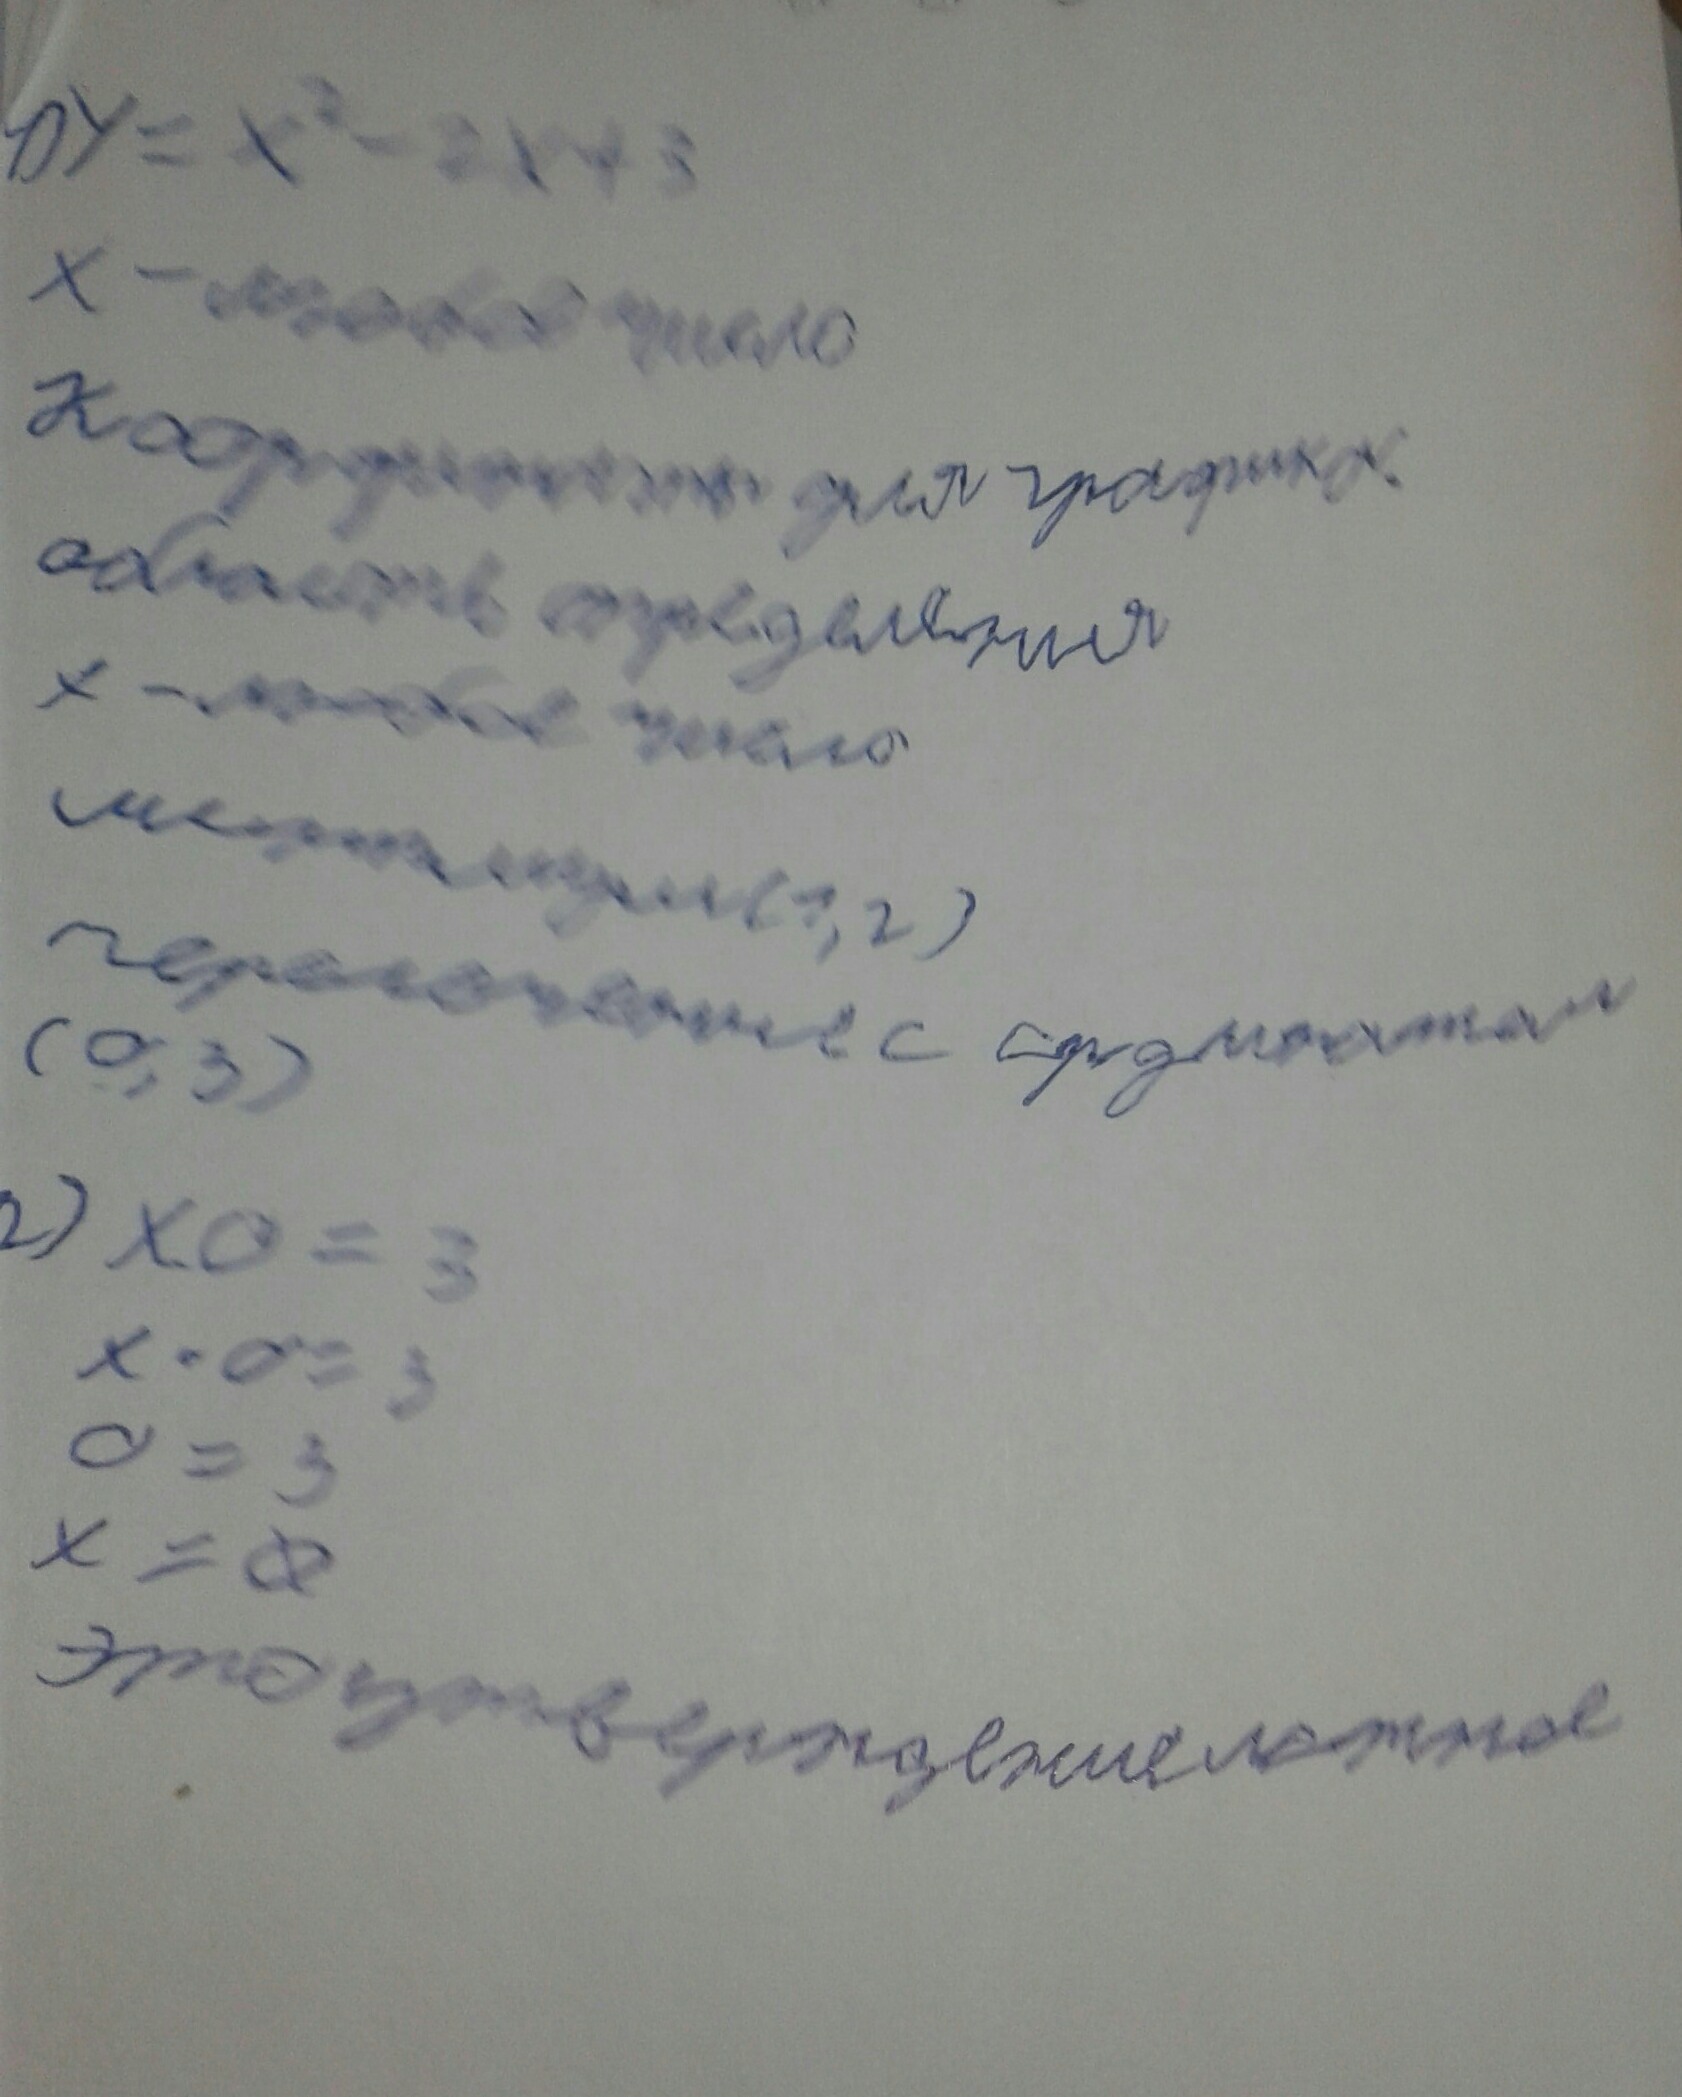 1) У = х² - 2х + 3
х - любое число
Координаты для графика
область определения
х - любое число
минимум (1, 2)
пересечение с ординатам
(0, 3)
2) х0 = 3
х · 0 = 3
0 = 3
х = ∅
Это утверждение ложное